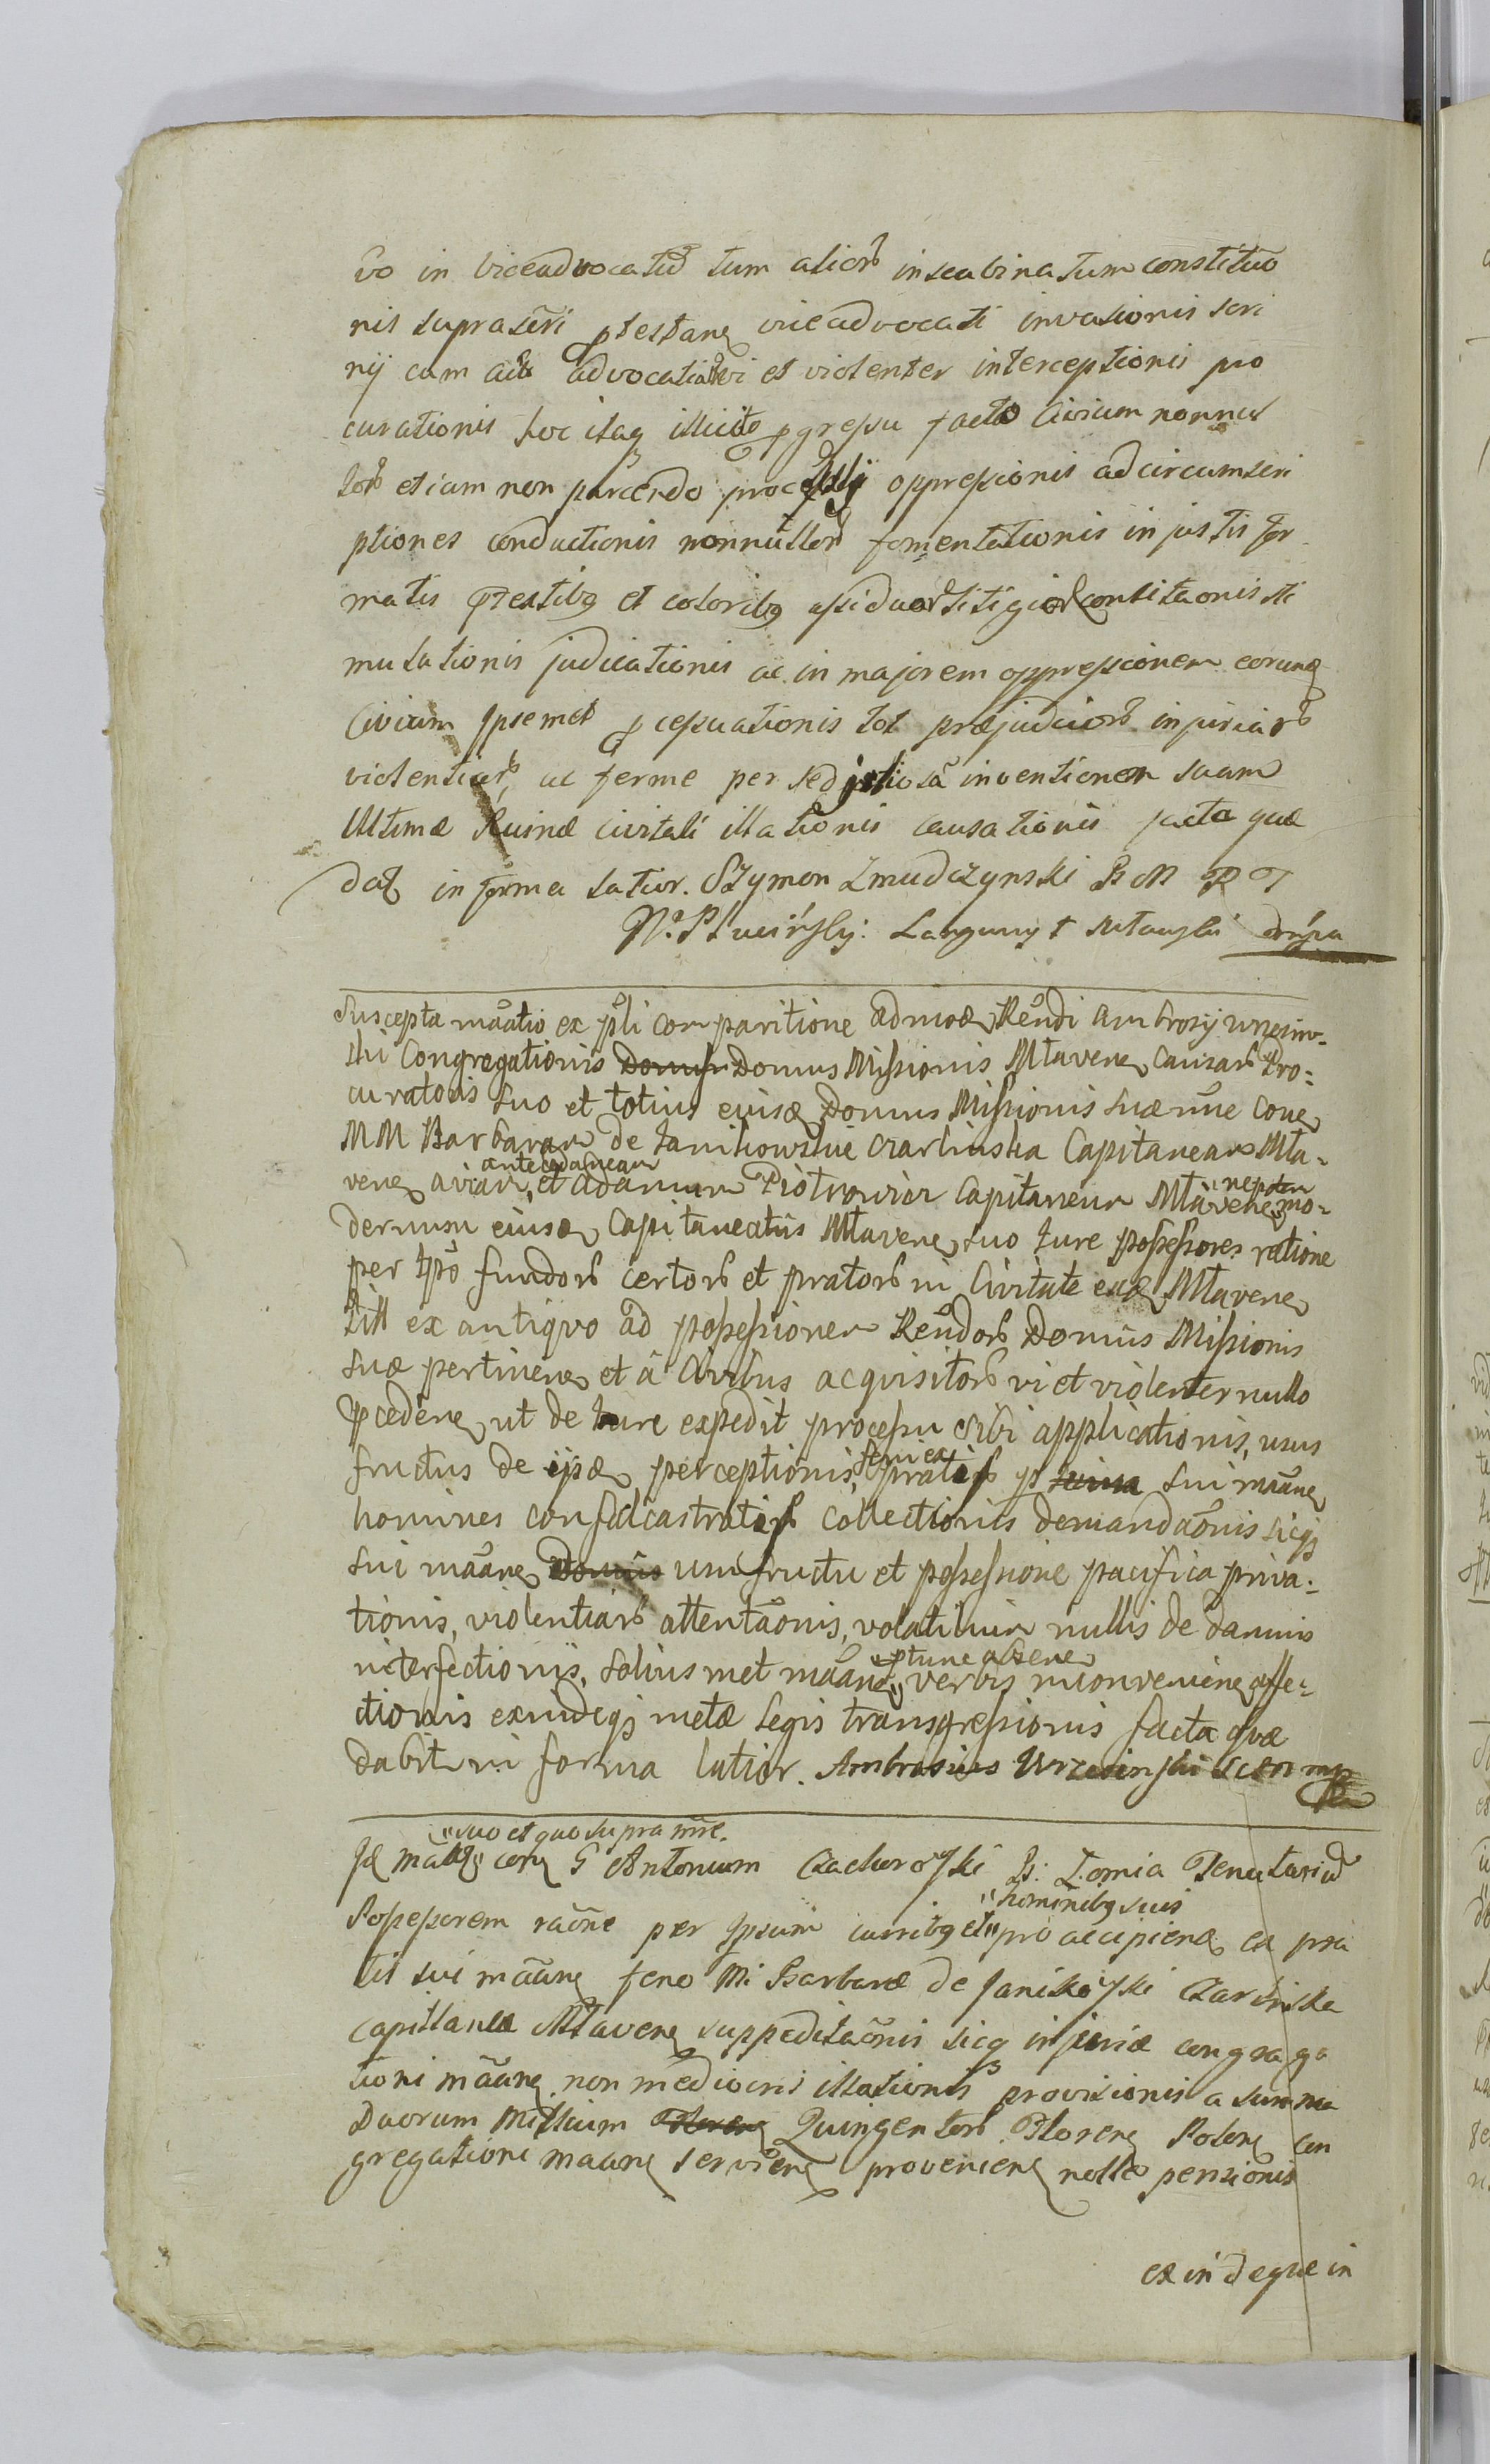 vo in viceadvocatu tum alior in scabinatum constituo
nis supra scri ptestane viceadvocati invasionis scri
nij cum actis advocatial vi et violenter interceptionis pro
curationis hoc itaq illicito pgressu facto Civium nonnul
lor etiam non parcendo oppressionis ad circumscri
ptiones conductionis nonnullor fomentationis injustis for
matis prtextibq et coloribq assiduor litigior concitaonis sti
mulationis judicationis ac in majorem oppressionem eorunq
Civium Ipsemet pcessuationis tot præjudicior injuriar
violentiar, ac ferme per seditiosa inventionem suam
Ultimæ Ruinæ civitati illationis causationis facta quæ
dat in forma latior. Szymon Zmudczynski B M P T
Suscepta maatio ex psli comparitione admoæ Rendi Ambrosij Wrzesin-
ski Congregationis Domus Domus Missionis Mlavene, Causar Pro:
curatoris suo et totius eiusæ Domus Missionis suæ nne cone
MM Barbaram de Janikowskie Czarlinska Capitaneam Mla-
vene aviam, antecedaneam et Adamum Piotrowicz Capitaneum Mlavene nepotem mo-
dernum eiusæ Capitaneatus Mlavene, suo Jure possessores ratione
per Ipso fundor certor et prator in Civitate eaæ Mlavene
sitt ex antiqvo ad possessionem Rendor Domus Missionis
suæ pertinene et à Civibus acquisitor vi et violenter nullo
pcedene ut de Jure expedit processu sibi applicationis, usus
fructus de ijsæ perceptionis, feni ex pratis sui maane
homines confalcastrati collectionis demandaonis sicq
sui maane Domus usufructu et possessione pacifica priva:
tionis, violentiar attentaonis, volatilium nullis de damnis
interfectionis, solius met maane ptunc absene verbis inconveniene affe:
ctionis exindeqs metæ legis transgressionis facta qvæ
dabit in forma latior. Ambrosius Wrzesinski CM mp
Iæ maas suo et quo supra nne. con G Antonium Czachorowski B: Lomia Tenutariu
Possessorem raone per Ipsum curribq et hominibq suis pro accipiene ex pra
tis sui maane feno Mi Barbaræ de Janikowski Czarlinska
capittaneæ Mlavene suppeditaonis sicq injuriæ congrega
tioni maane non mediocris illationis provisionis a summa
Duorum Millium Florene Quingentor Florene Polone con
gregationi maane serviene proveniene nollo pensionis
exindeque in